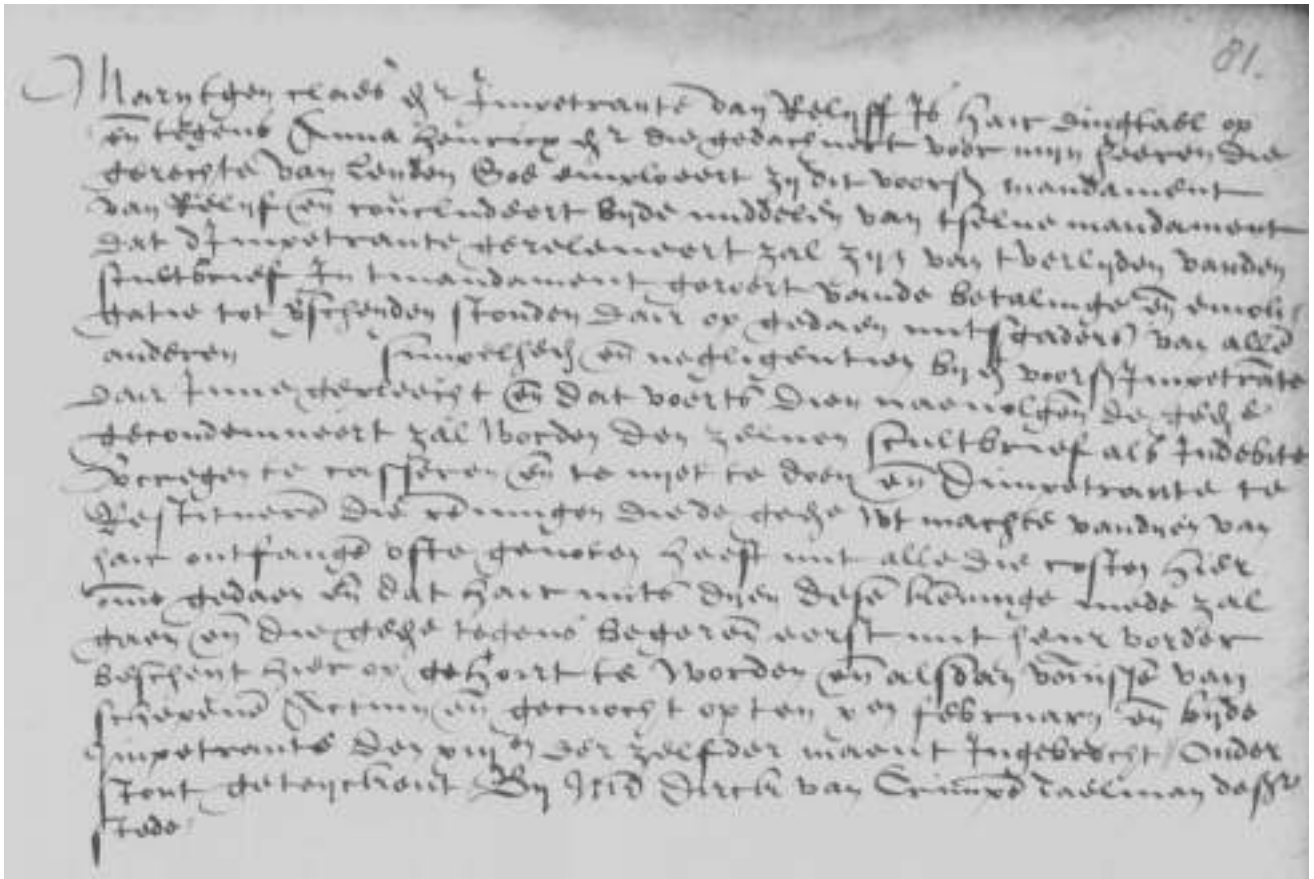 81.
Marytgen claes dr Impetrante van Relijff Is hair dingtael op
en tegens Anna heinricx dr die gedachneert voor mijn heeren die
gerechte van Leyden Soe employeert zij dit voors mandament
van Relijf en concludeert bijde middelen van tselue mandament
dat dImpetrante gereleueert zal zijn van tverlijden vanden
scultbrief In tmandament geroert vande betalinge en
gatie tot verscheyden stonden dair op gedaen mitsgaders van allen
anderen simpelheyt en negligentien bij voors Impetrante
dair Inne gepleecht en dat voerts dien naeuolgen de gede
gecondemneert zal worden den zeluen scultbrief als Indebite
vercregen te casseren en te niet te doen en dimpetrante te
Restitueren die penningen die de gede wt machte vandien van
hair ontfangen ofte genoten heeft mit alle die costen hier
omme gedaen en dat hair mits dijen desen kenninge mede zal
gaen en die gede tegens begeren eerst mit heur vorder
bescheyt hier op gehoirt te worden en alsdan vonnisse van
scepenen Actum en genocht opten xen february en bijde
Impetrante den viijen der zelfder maent Ingebrocht / Onder
stont geteyckent By Mij Dirck van taelman desser
stede